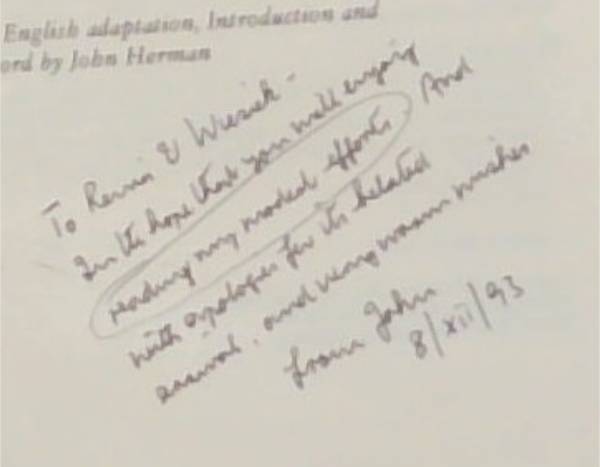 English adaptation, Introduction and
ord by John Herman
To Renia & Wiesiek -
In the hope that you will enjoy
reading my modest efforts. And
with apologies for its belated
arrival, and very warm wishes
from John
8/xii/93